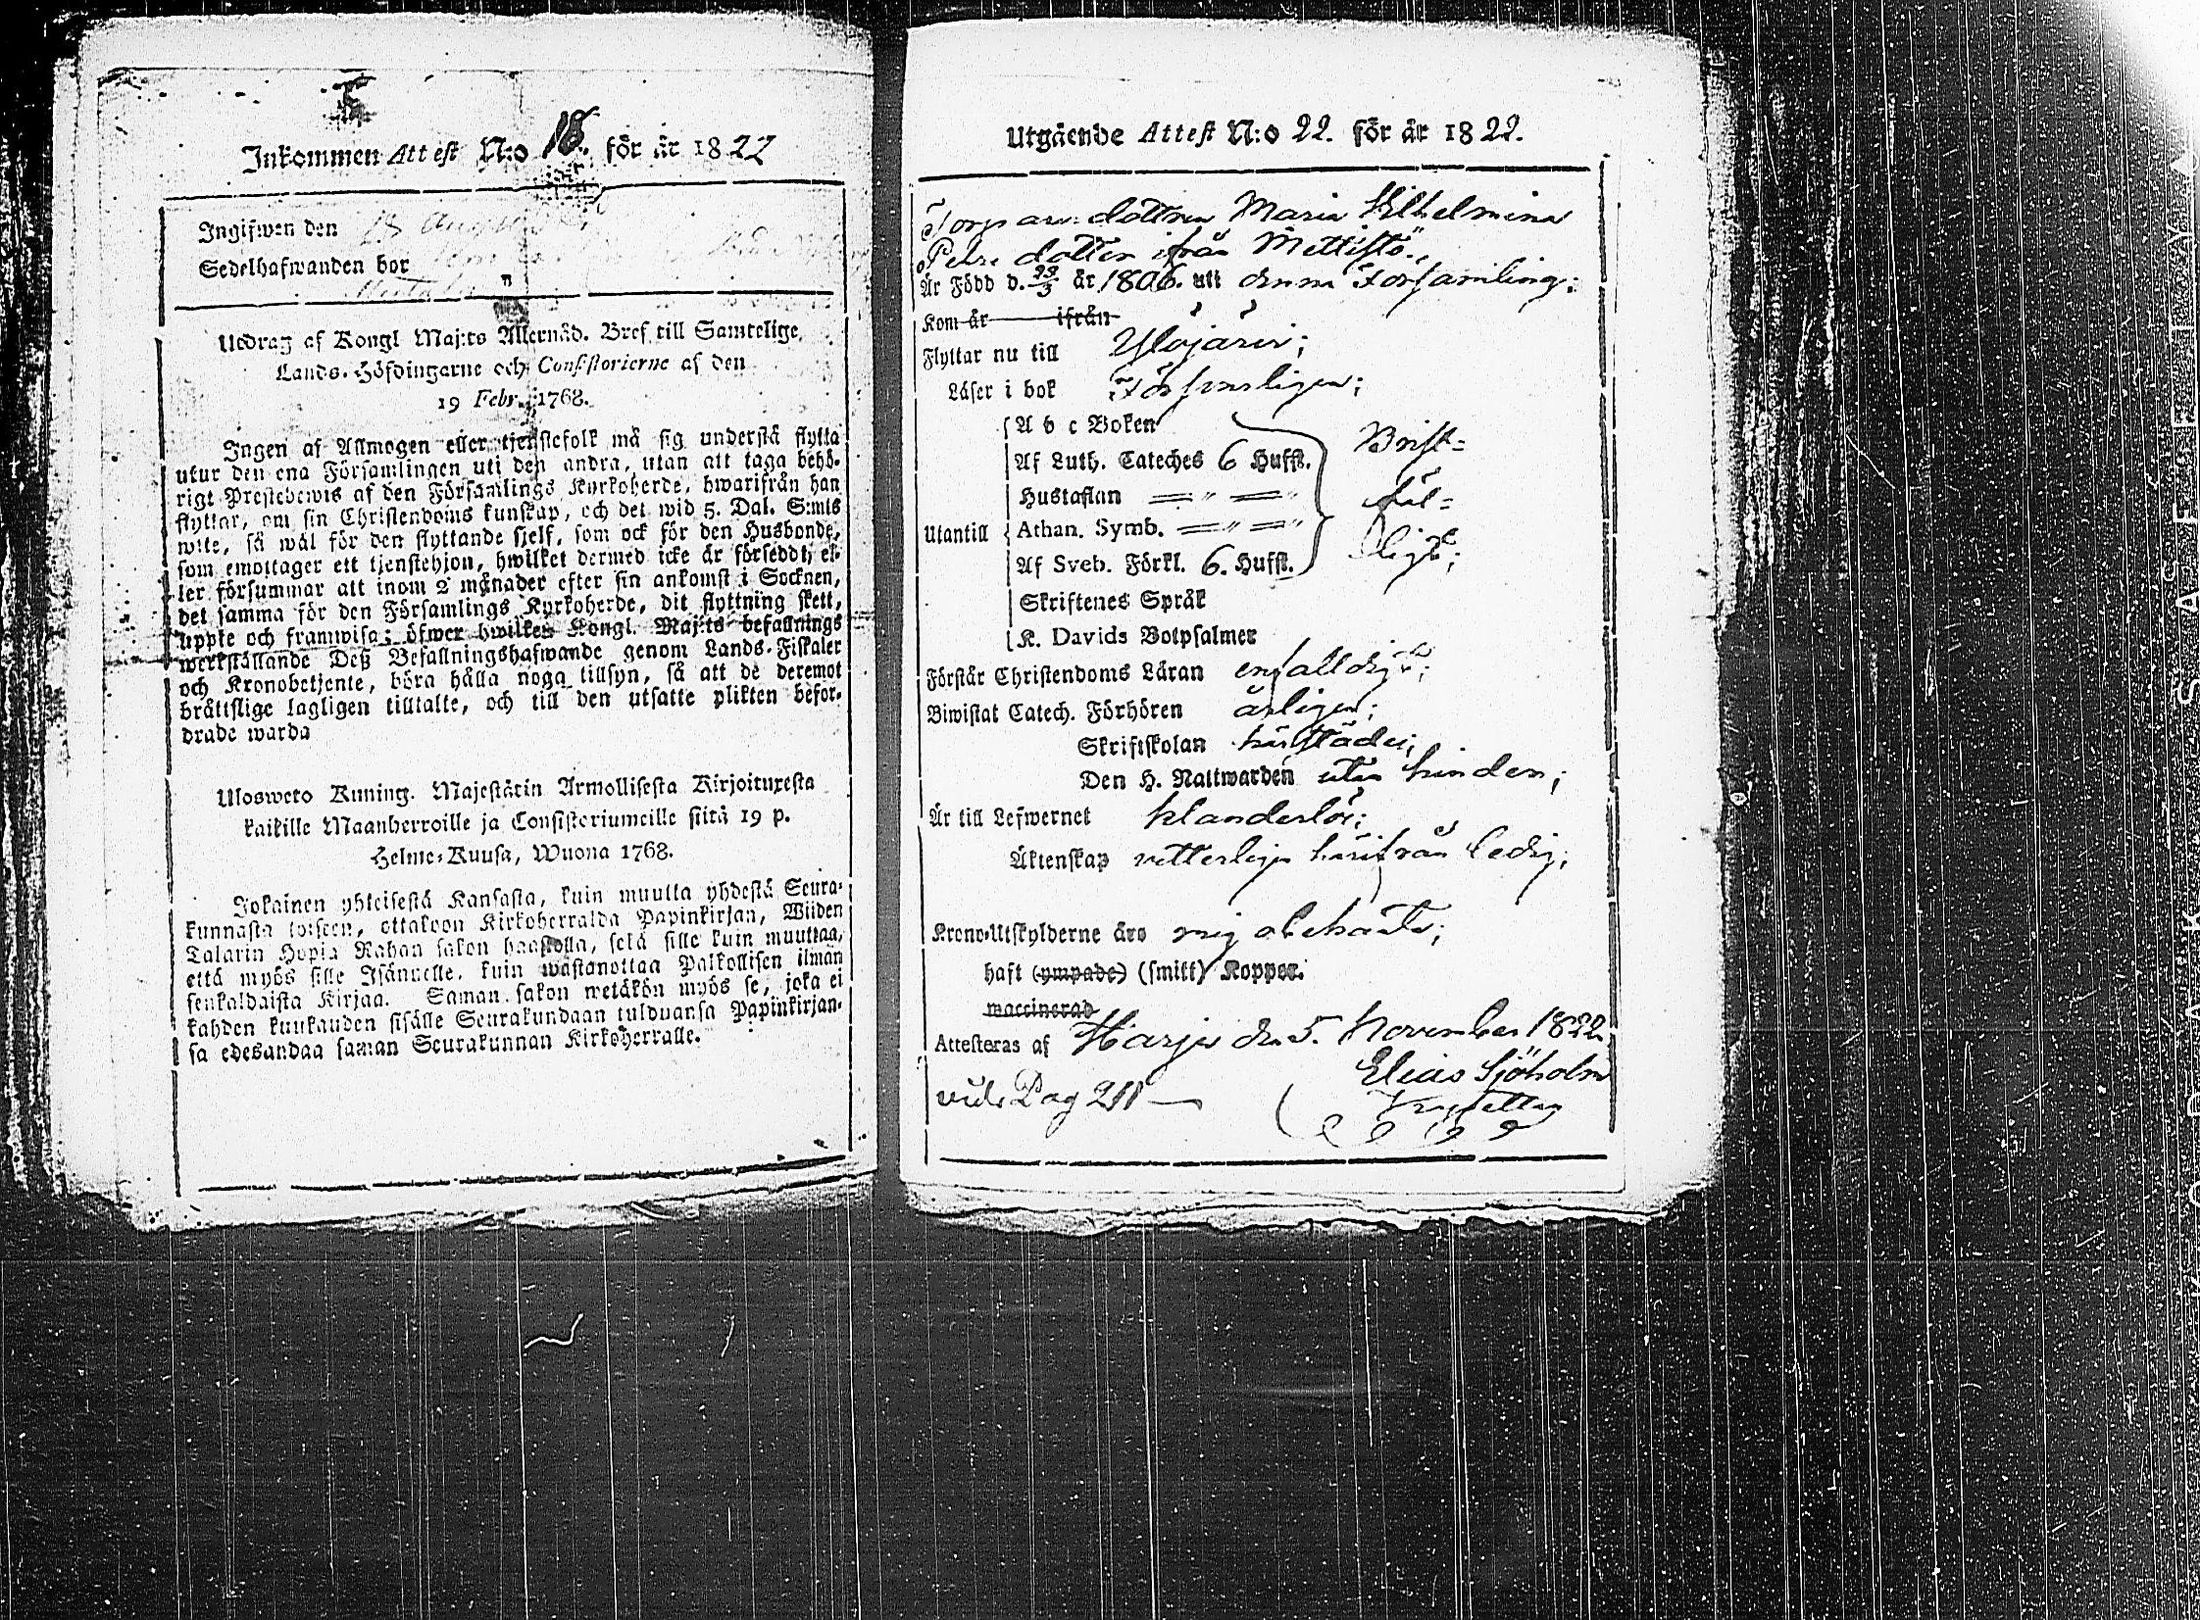 Inkommen Attest N:o 18. för år 1822
Ingifwen den 18 Augusti
Sedelhafwanden bor
Utdrag af Kongl Maj:ts Allernåd. Bref till Samtelige
Lands-Höfdingarne och Consistorierne af den
19 Febr. 1768.
Ingen af Allmogen eller tjenstefolk må sig understå flytta
utur den ena Församlingen uti den andra, utan att taga behö-
rigt Prestebewis af den Församlings Kyrkoherde, hwarifrån han
flyttar, om sin Christendoms kunskap, och det wid 5. Dal. S:mts
wite, så wäl för den flyttande sjelf, som ock för den Husbonde,
som emottager ett tjenstehjon, hwilket dermed icke är försedt, el-
ler försummar att inom 2 månader efter sin ankomst i Socknen,
det samma för den Församlings Kyrkoherde, dit flyttning skett,
uppte och framwisa; öfwer hwilken Kongl. Maj:ts befallnings
werkställande Deß Befallningshafwande genom Lands-Fiskaler
och Kronobetjente, böra hålla noga tillsyn, så att de deremot
bråttslige lagligen tilltalte, och till den utsatte plikten befor-
drade warda
Ulosweto Kuning. Majestätin Armollisesta Kirjoituxesta
kaikille Maanherroille ja Consistoriumeille siitä 19 p.
Helme-Kuusa, Wuona 1768.
Jokainen yhteisestä Kansasta, kuin muutta yhdestä Seura-
kunnasta toiseen, ottakoon Kirkoherralda Papinkirjan, Wiiden
Talarin Hopia Rahan sakon haastolla, sekä sille kuin muuttaa,
että myös sille Isännelle, kuin wastanottaa Palkollisen ilman
senkaldaista Kirjaa. Saman sakon wetäkön myös se, joka ei
kahden kuukauden sisälle Seurakundaan tulduansa Papinkirjan-
sa edesandaa saman Seurakunnan Kirkoherralle.
Utgäende Attest N:o 22. för år 1822.
Torpare dottren Maria Vilhelmina
Pehrs dotter ifrån Mettistö.,
Är Född d. 22/3 år 1806. uti denna Församling;
Kom år ifrån
Flyttar nu till Ylöjärvi;
Läser i bok Försvarligen;
A b c Boken
Af Luth. Cateches 6 Hufst. Brist-
Hustaflan fäl-
Utantill Athan. Symb. ligt;
Af Sveb. Förkl. 6. Hufst.
Skriftenes Språk
K. Davids Botpsalmer
Förstår Christendoms Läran enfalldigt;
Biwistat Catech. Förhören årligen;
Skriftskolan härstädes;
Den H. Nattwarden utan hinder;
Är till Lefwernet klanderlös;
Äktenskap vetterligen härifrån ledig;
Krono-Utskylderne äro mig obekante;
haft (ympade) (smitt) Koppor.
waccinerad
Attesteras af Harju den 5. November 1822.
Elias Sjöholm
vide Pag 211